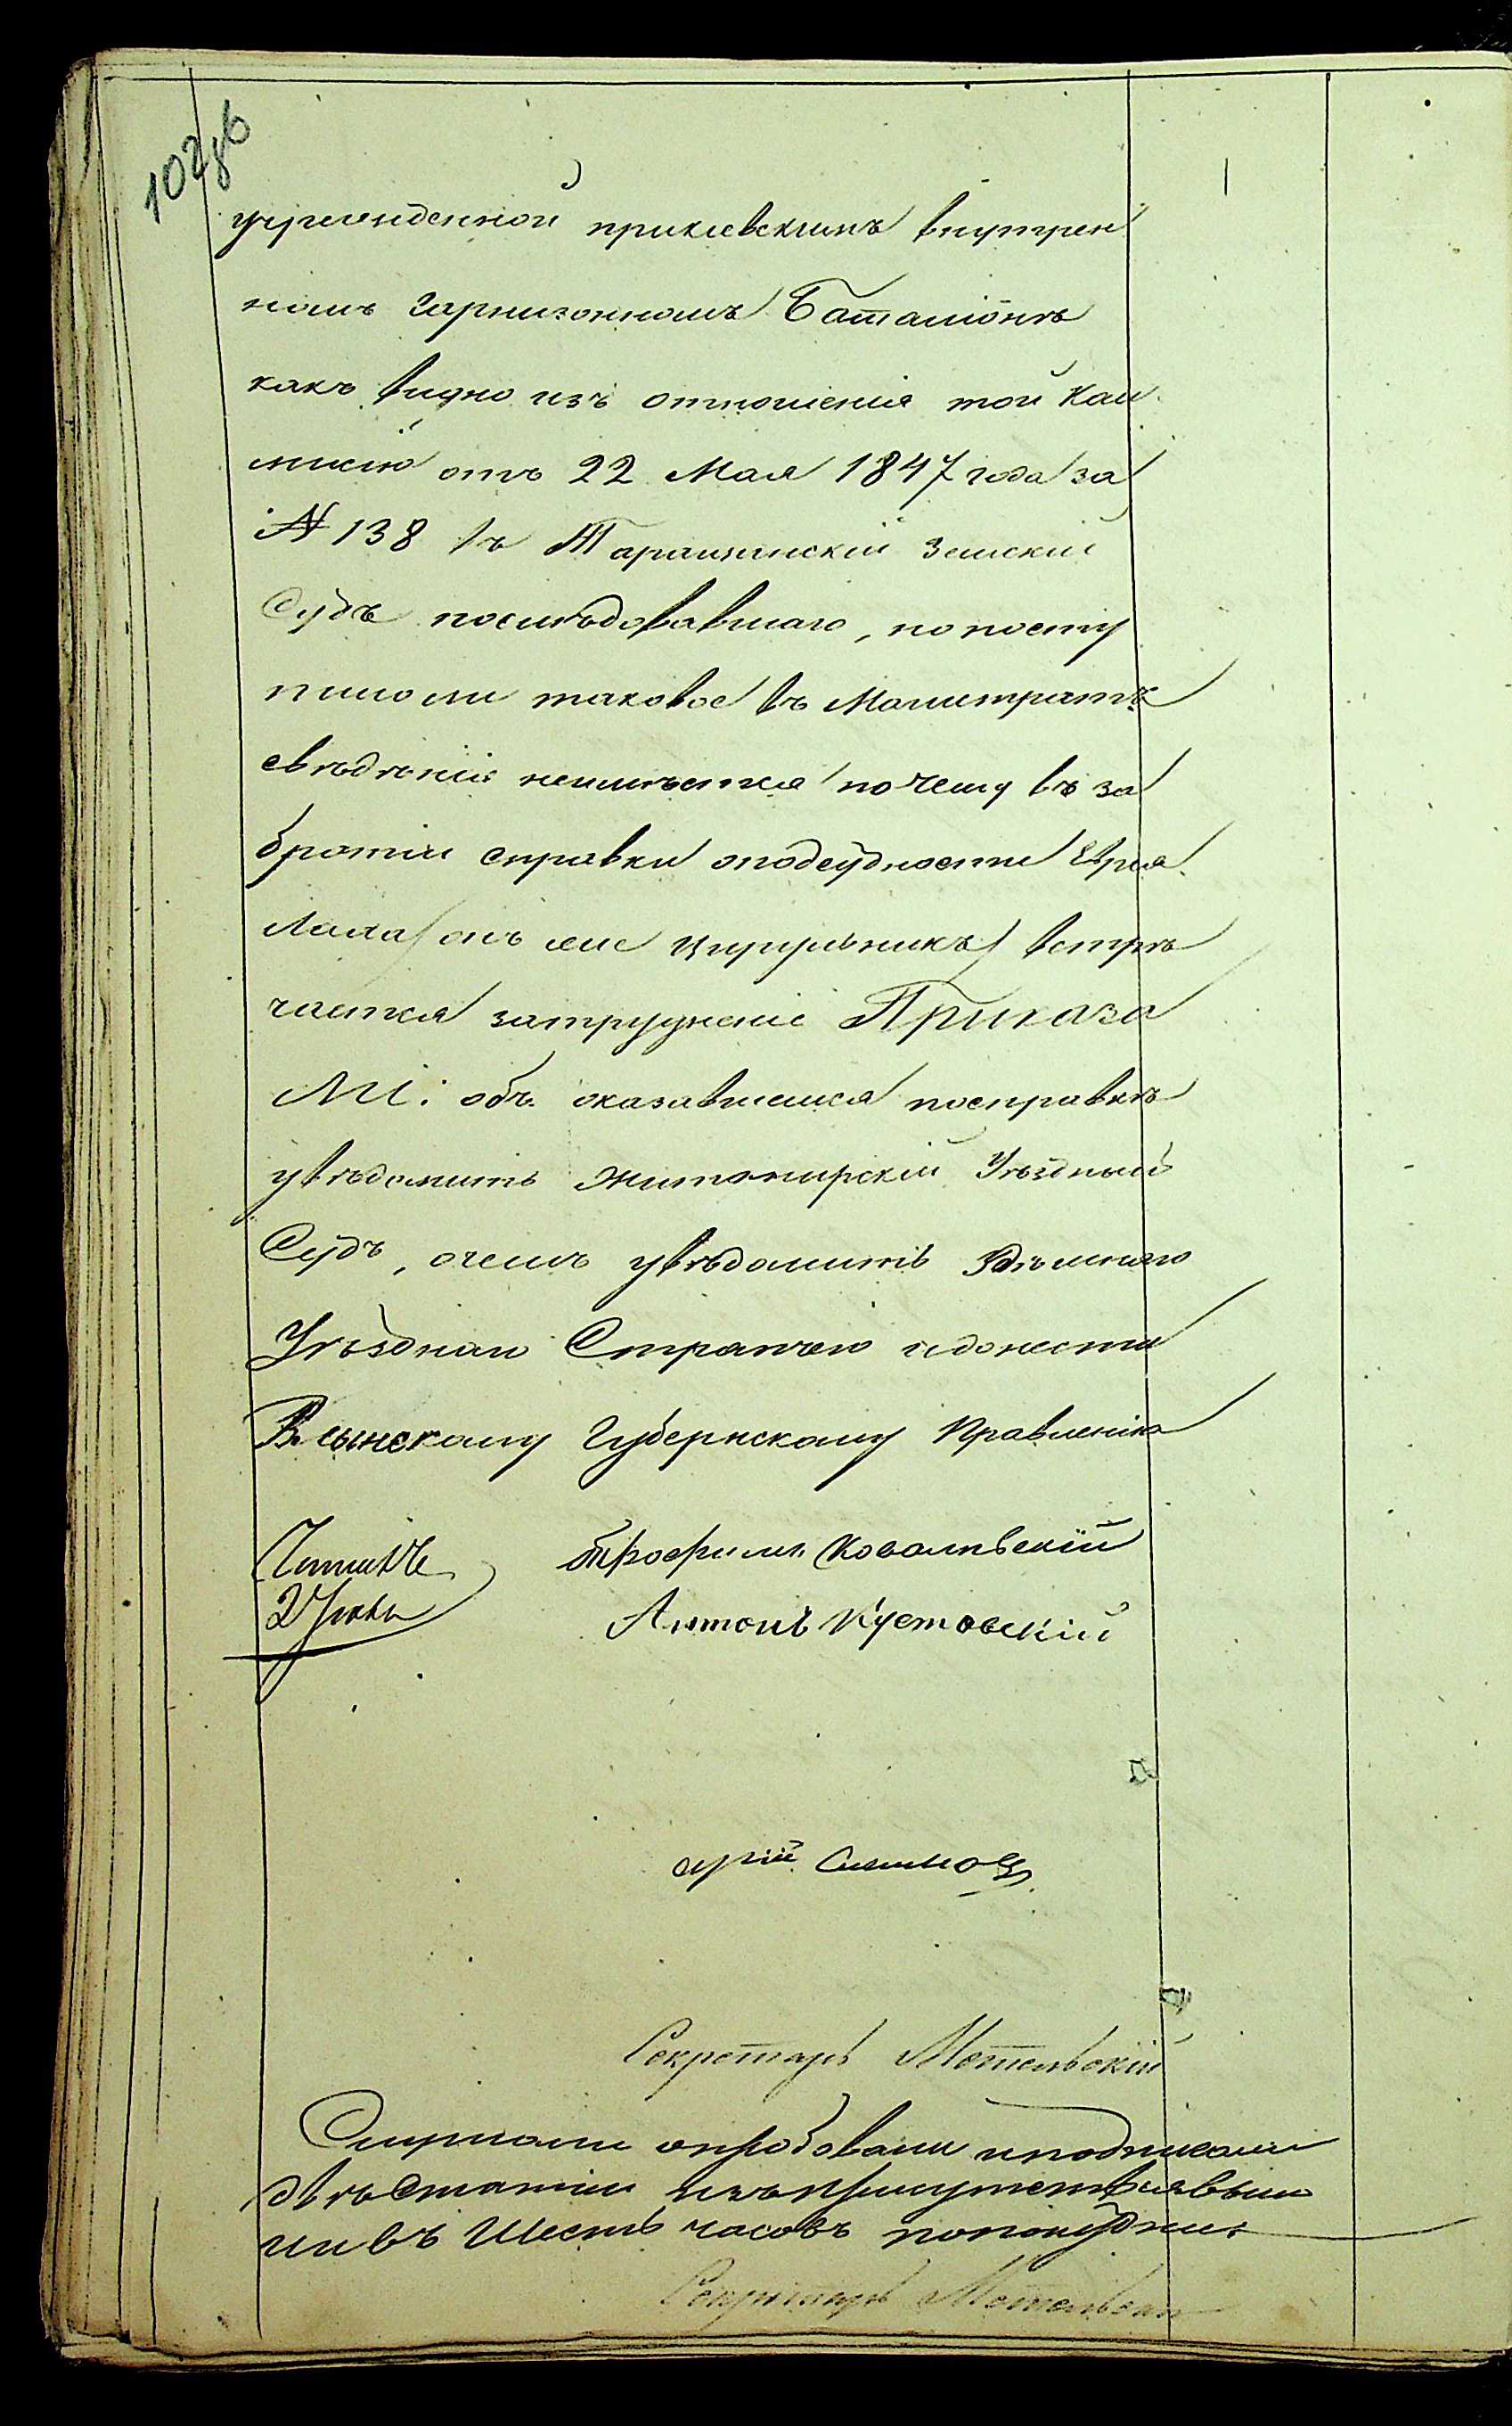 102 об
учрежденной прикіевскимъ внутрен
номъ гарнизонномъ Баталіонѣ
какъ видно изъ отношенія той Ком
мисіи отъ 22 Мая 1847 года за
№ 138 въ Таращанскій Земскій
Судъ послѣдовавшаго, но посту
пило ли таковое въ Магистратъ
свѣдѣнія неимѣется почему въ за
братіи справки оподсудности
онъ же цирульникъ встрѣ
чается затрудненіе Приказа
ли: объ оказавшемся посправкѣ
увѣдомить Житомирскій Уѣздный
Судъ, очемъ увѣдомить Здѣшняго
Уѣзднаго Стряпчего идонести
Волынскому Губернскому Правленію
Читалъ
Трофимъ Ковальскій
Антонъ Кустовскій
Секретарь Мотельскій
Слушали опробовали иподписали
двѣ Статіи изъприсутствія вышли
въ Шесть часовъ пополудни
Секретарь Мотельскій